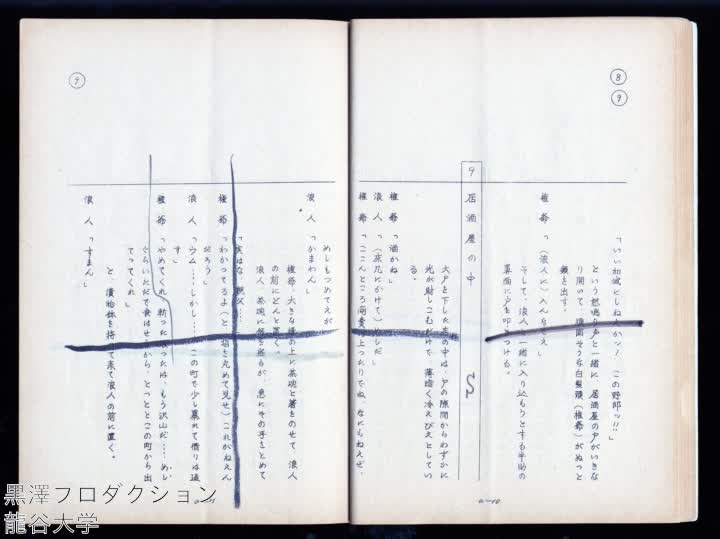 ⑧
⑨
「いい加減にしねえかッ！ この野郎ッ!!!」
という怒鳴り声と一緒に 居酒屋の戸がいきな
り開いて 頑固そうな白髪頭（権爺）がぬっと
顔を出す。
権爺「（浪人に）入んねえ」
そして、浪人と一緒に入り込もうとする半助の
鼻面に戸を叩きつける。
9 居酒屋の中
大戸を下した家の中は、戸の隙間からわずかに
光が射しこむだけで 薄暗く冷えびえとしてい
る。
権爺「酒かね」
浪人「（床几にかけて）めしだ」
権爺「ここんところ商売は上ったりでね、なにもねえぜ、
a-10
⑨
めしもつめてえが
浪人「かまわん」
権爺、大きな樽の上に茶碗と箸をのせて、浪人
の前にどんと置く。
浪人、茶碗に飯を盛るが、急にその手をとめて
「実はな 親父……
権爺「わかってるよ（と 指を丸めて見せ）これがねえん
だろう」
浪人「ウム……しかし……この町で少し暴れて借りは返
す」
権爺「やめてくれ、斬ったはったは、もう沢山だ……めし
ぐらいただで食はせるから、とっととこの町から出
てってくれ」
浪人「すまん」
と 漬物鉢を持って来て浪人の前に置く。
黒澤プロダクション
龍谷大学